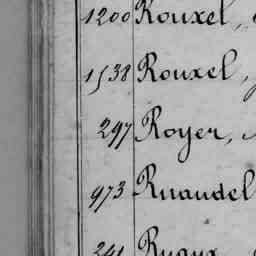 1200 Rouxel,
1538 Rouxel,
297 Royer,
973 Ruaudel
241 Ruaux